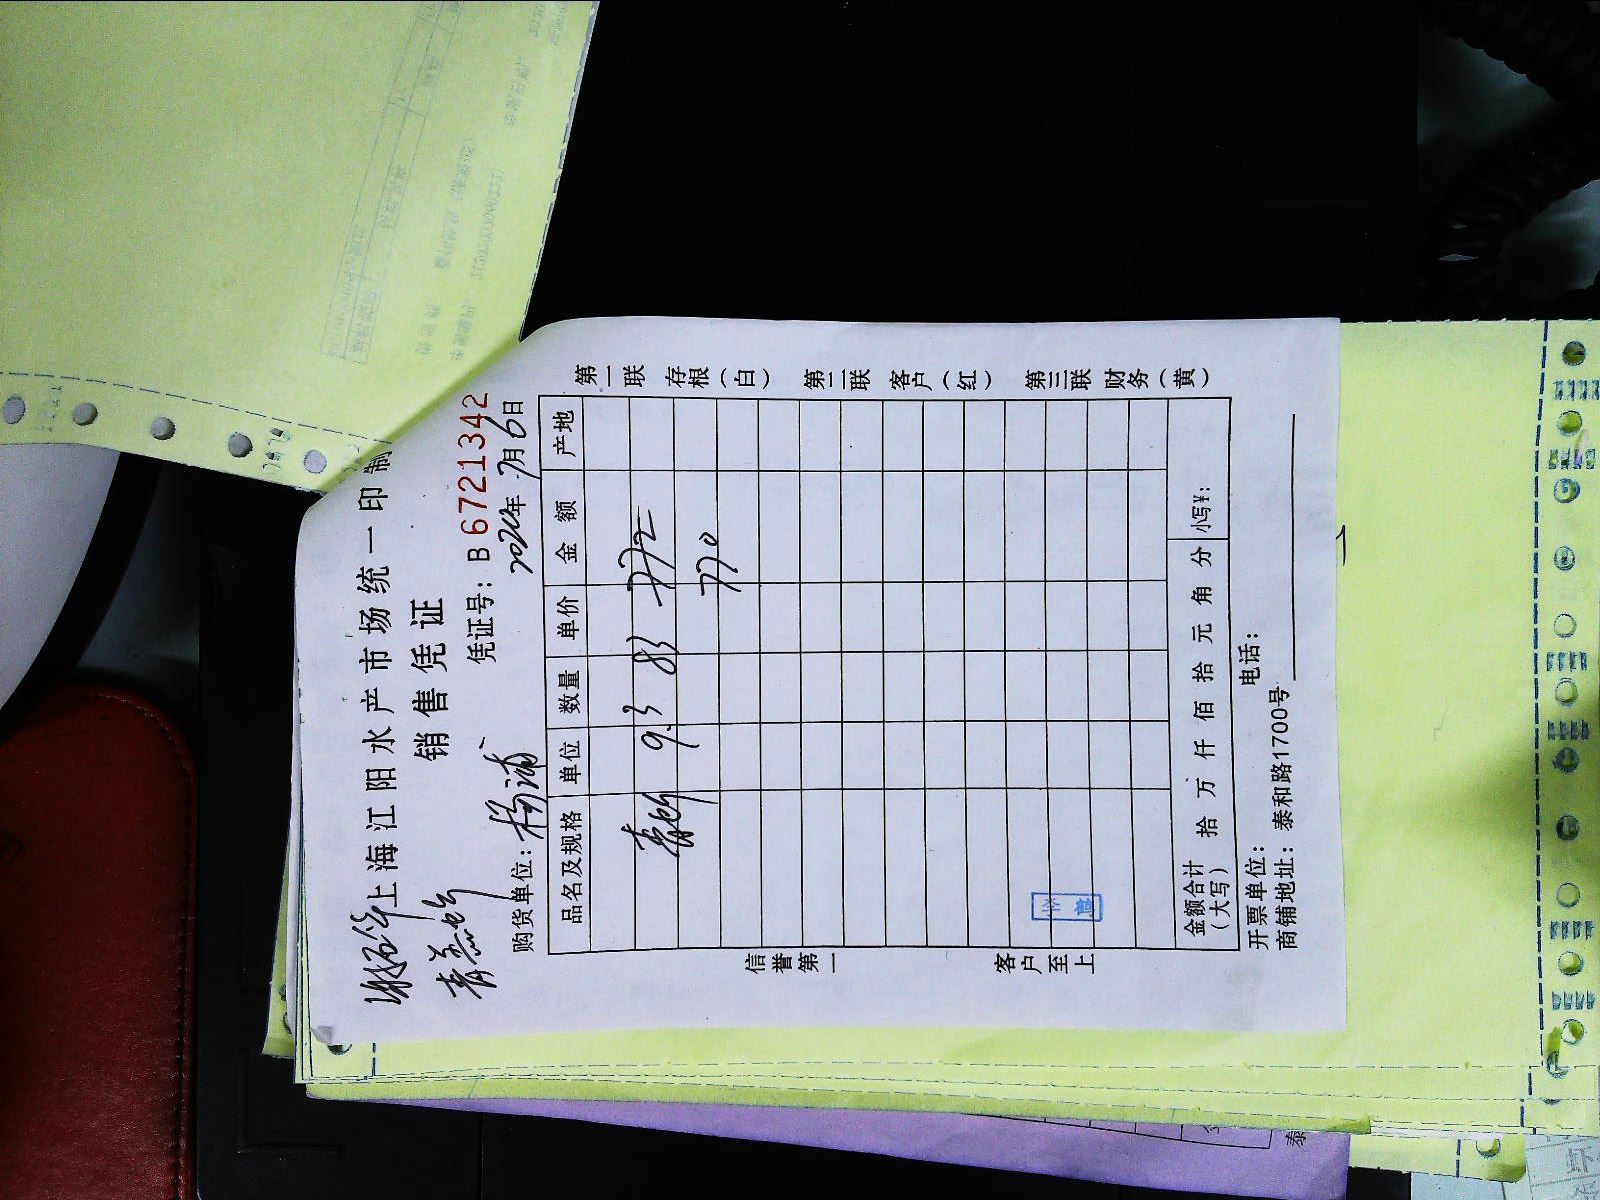 上海江阳水产市场统一印制
销售凭证
凭证号：B 6721342
购货单位：杨浦 2020年7月6日
品名及规格 单位 数量 单价 金额 产地
9.3 83 772
770
金额合计（大写） 拾 万 仟 佰 拾 元 角 分 小写¥：
开票单位： 电话：
商铺地址：泰和路1700号
信誉第一 客户至上
第一联 存根（白） 第二联 客户（红） 第三联 财务（黄）